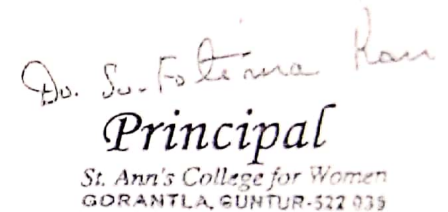 Dr. Sr. Fatima Rani
Principal
St. Ann's College for Women
GORANTLA, GUNTUR-522 035